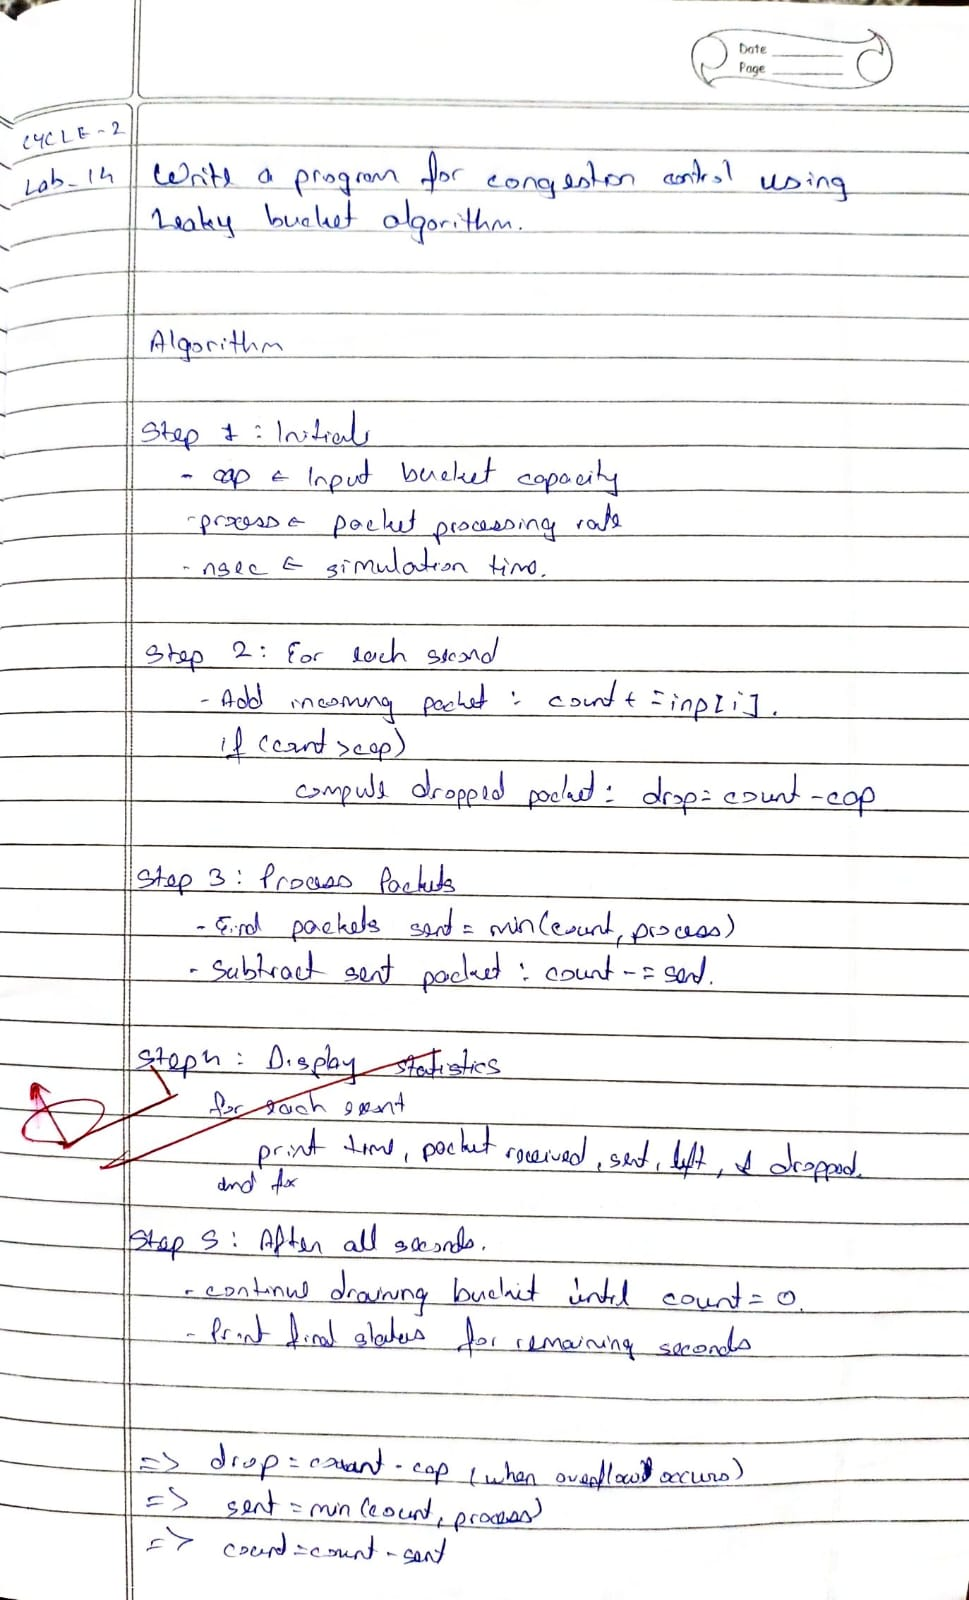 Date
Page
CYCLE-2
Lab-14 Write a program for congestion control using
Leaky bucket algorithm.
Algorithm
Step 1 : Initials
- cap ← Input bucket capacity
- process ← packet processing rate
- nsec ← simulation time.
Step 2: For each second
- Add incoming packet : count + = inp[i].
if (count > cap)
compute dropped packet : drop = count - cap
Step 3 : Process Packets
- Find packets sent = min(count, process)
- Subtract sent packet : count - = sent.
Step 4 : Display statistics
for each
print time, packet received, sent, left, & dropped.
end for
Step 5 : After all seconds.
- continue draining bucket until count = 0.
- Print final status for remaining seconds
=> drop = count - cap (when overflow occurs)
=> sent = min (count, process)
=> count = count - sent